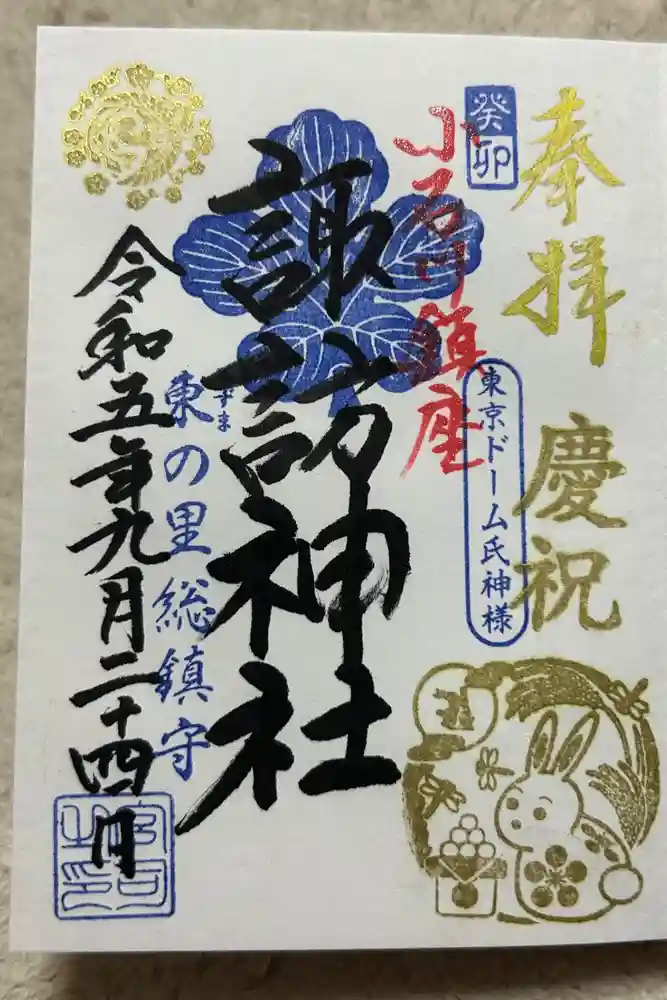 奉拝 慶祝
癸卯
東京ドーム氏神様
小石川鎮座
諏訪神社
東の里総鎮守
ずま
令和五年九月二十四日
宮司之印